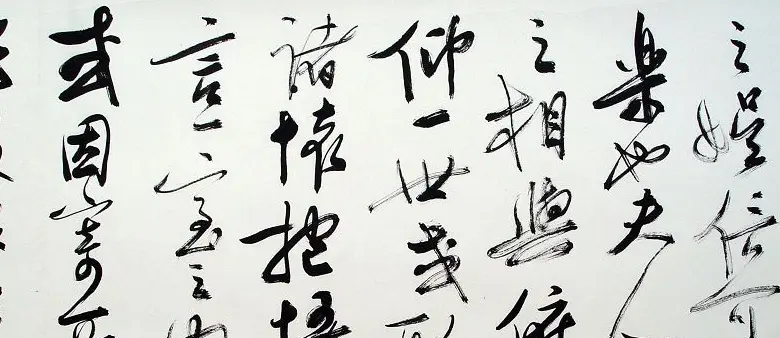 之娱信可
樂也夫人
之相與俯
仰一世或取
諸懷抱悟
言一室之内
或因寄所